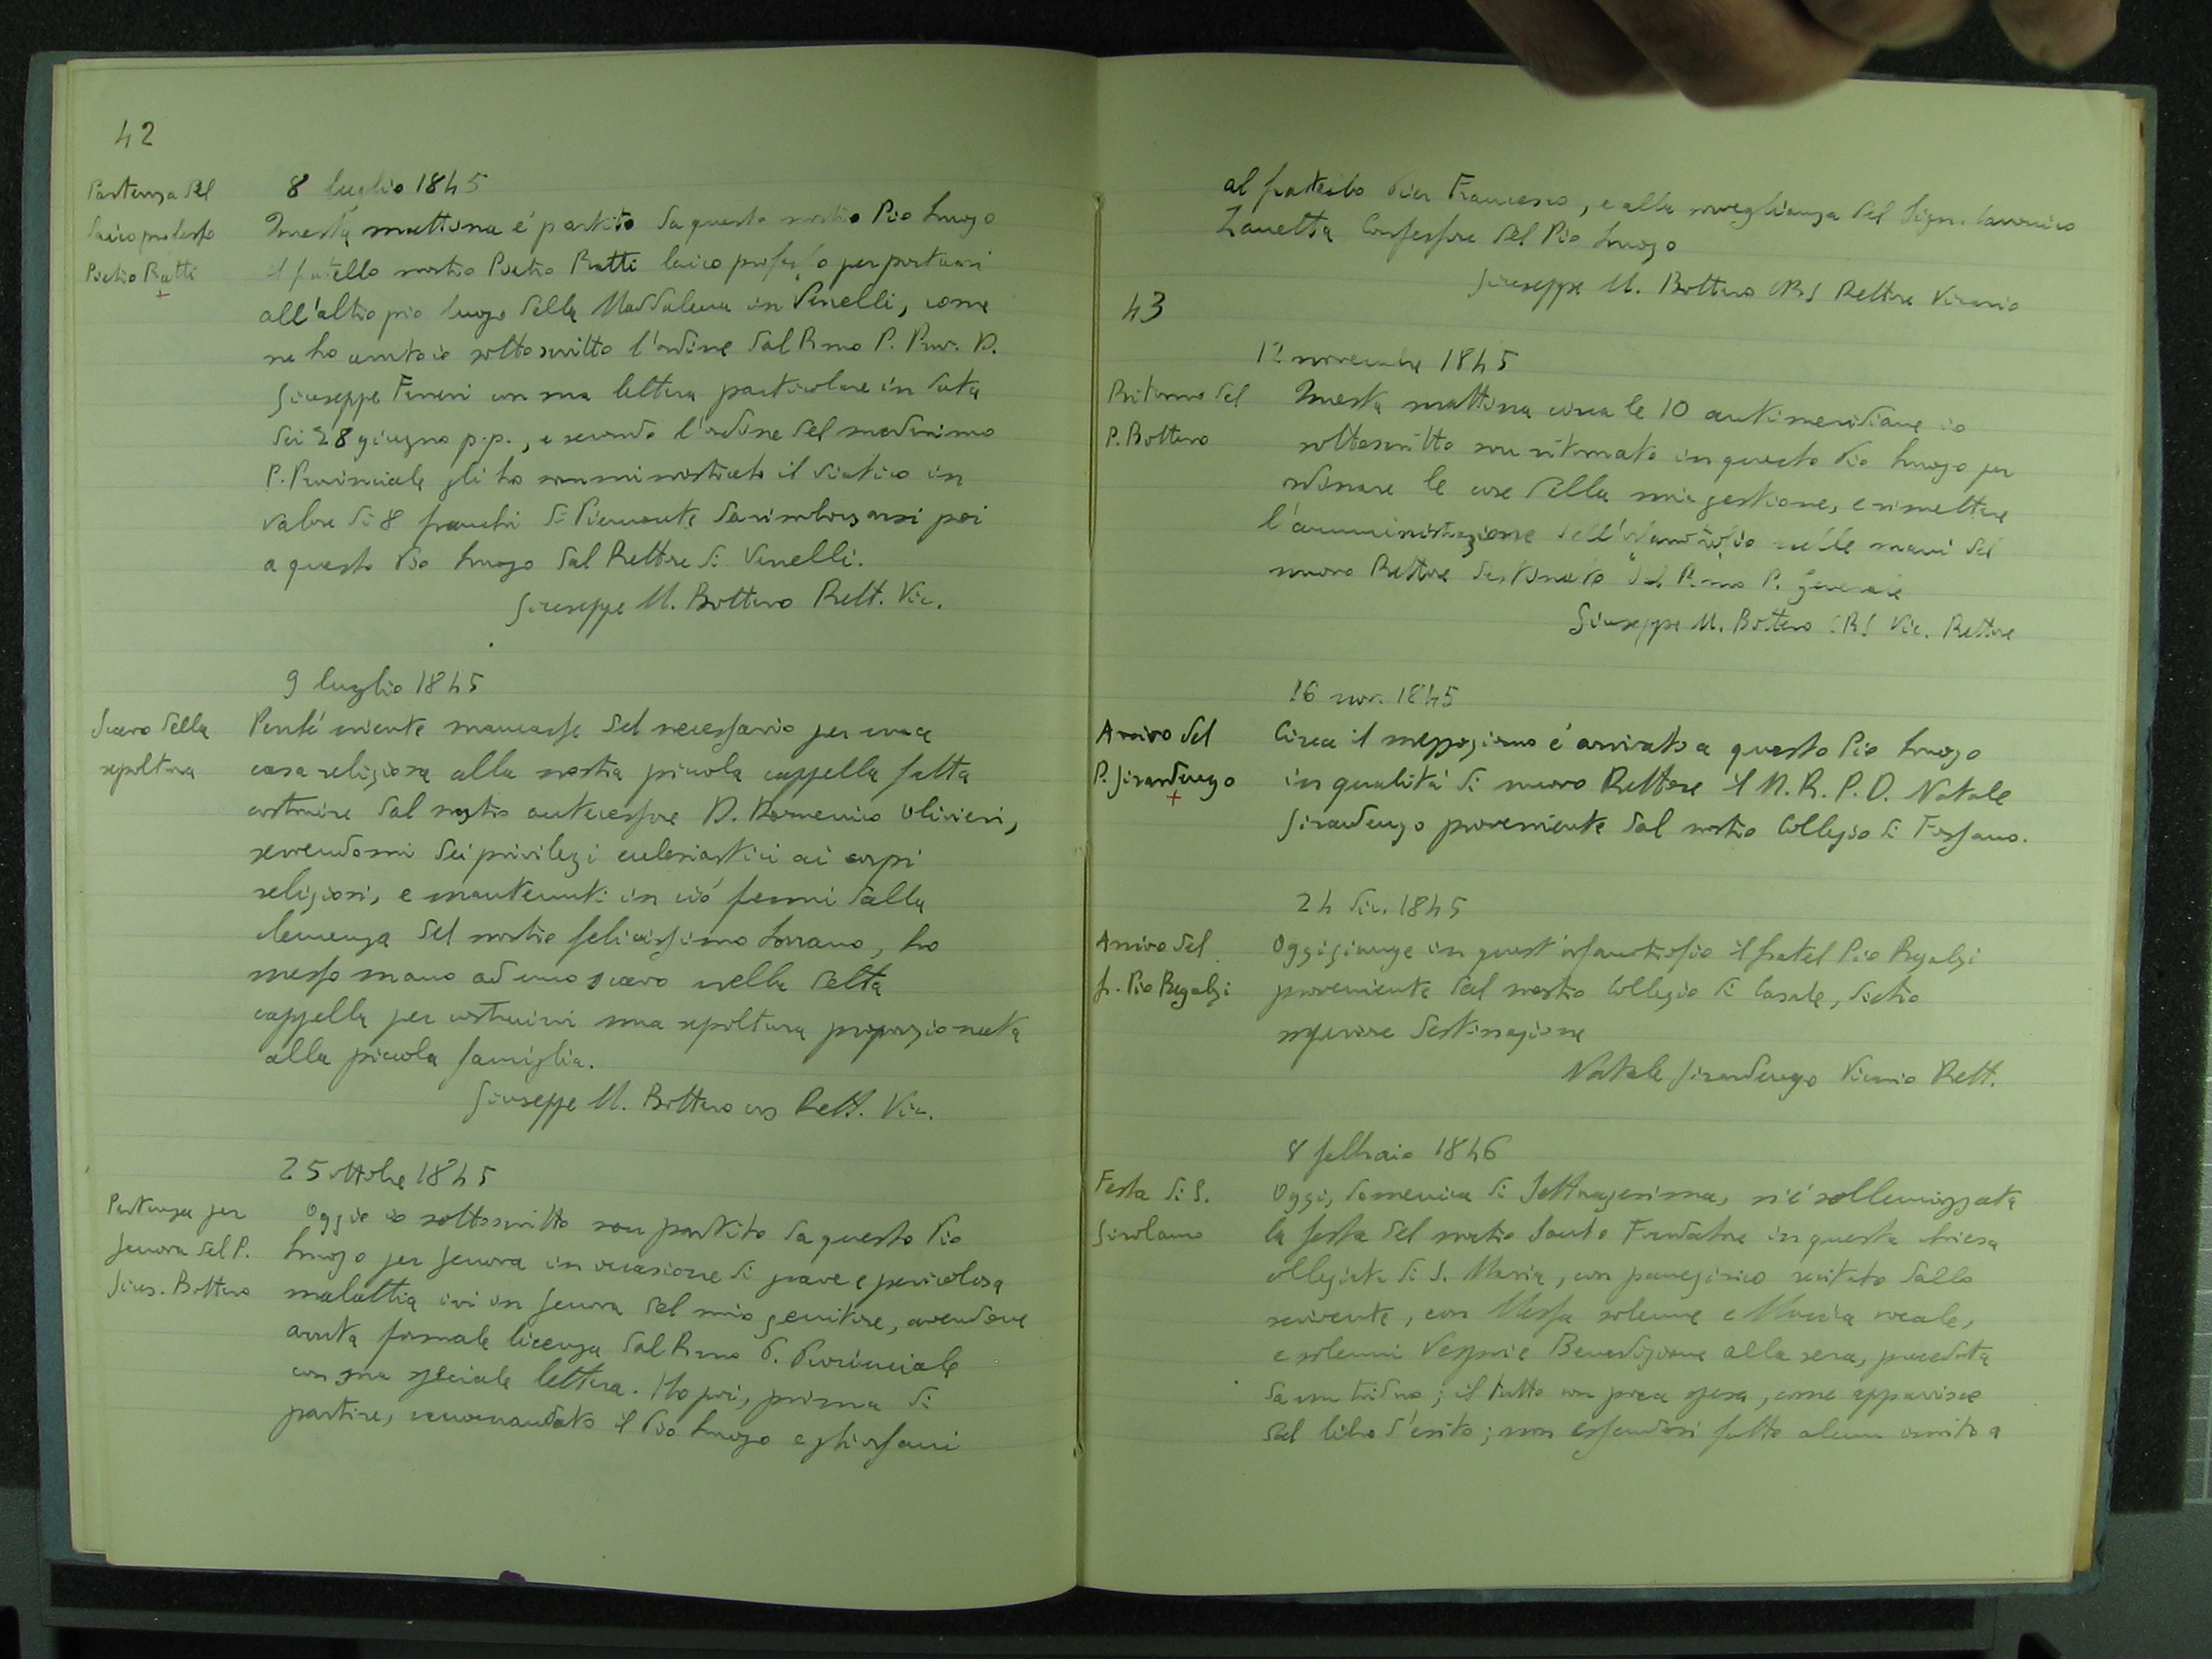 42
Partenza del
laico professo
Pietro Ratti
8 luglio 1845
Questa mattina é partito da questo nostro Pio Luogo
il fratello nostro Pietro Ratti laico professo per portarsi
all'altro pio luogo della Maddalena in Vercelli, come
ne ho avuto io sottoscritto l'ordine dal R.mo P. Prov. D.
Giuseppe Ferreri con sua lettera particolare in data
dei 28 giugno p.p., e secondo l'ordine del medesimo
P. Provinciale gli ho somministrato il viatico in
valore di 8 franchi di Piemonte da rimborsarsi poi
a questo Pio Luogo dal Rettore di Vercelli.
Giuseppe M. Bottero Rett. Vic.
9 luglio 1845
Scavo della
sepoltura
Perché niente mancasse del necessario per una
casa religiosa alla nostra piccola cappella fatta
costruire dal nostro antecessore D. Domenico Olivieri,
servendomi dei privilegi ecclesiastici ai corpi
religiosi, e mantenuti in ció fermi dalla
clemenza del nostro felicissimo Sovrano, ho
messo mano ad uno scavo nella detta
cappella per costruirvi una sepoltura proporzionata
alla piccola famiglia.
Giuseppe M. Bottero crs Rett. Vic.
25 ottobre 1845
Partenza per
Genova del P.
Gius. Bottero
Oggi io sottoscritto son partito da questo Pio
Luogo per Genova in occasione di grave e pericolosa
malattia ivi in Genova del mio genitore, avendone
avuta formale licenza dal R.mo P. Provinciale
con sua speciale lettera. Ho poi, prima di
partire, raccomandato il Pio Luogo e gli orfani
al fratello Pier Francesco, e alla sorveglianza del Sign. Canonico
Zanetta Confessore del Pio Luogo
Giuseppe M. Bottero CRS Rettore Vicario
43
12 novembre 1845
Ritorno del
P. Bottero
Questa mattina circa le 10 antimeridiane io
sottoscritto son ritornato in questo Pio Luogo per
ordinare le cose della mia gestione, e rimettere
l'amministrazione dell'orfanotrofio nelle mani del
nuovo Rettore destinato dal R.mo P. Generale
Giuseppe M. Bottero CRS Vic. Rettore
16 nov. 1845
Arrivo del
P. Girardengo
Circa il mezzogiorno é arrivato a questo Pio Luogo
in qualitá di nuovo Rettore il M. R. P. D. Natale
Girardengo proveniente dal nostro Collegio di Fossano.
24 dic. 1845
Arrivo del
fr. Pio Regalzi
Oggi giunge in quest'orfanotrofio il fratel Pio Regalzi
proveniente dal nostro Collegio di Casale, dietro
superiore destinazione
Natale Girardengo Vicario Rett.
8 febbraio 1846
Festa di S.
Girolamo
Oggi, domenica di Settuagesima, si é sollennizzata
la festa del nostro Santo Fondatore in questa chiesa
collegiata di S. Maria, con panegirico recitato dallo
scrivente, con Messa solenne e Musica vocale,
e solenni Vespri e Benedizione alla sera, preceduta
da un triduo; il tutto con poca spesa, come apparisce
dal libro d'esito; non essendosi fatto alcun invito a